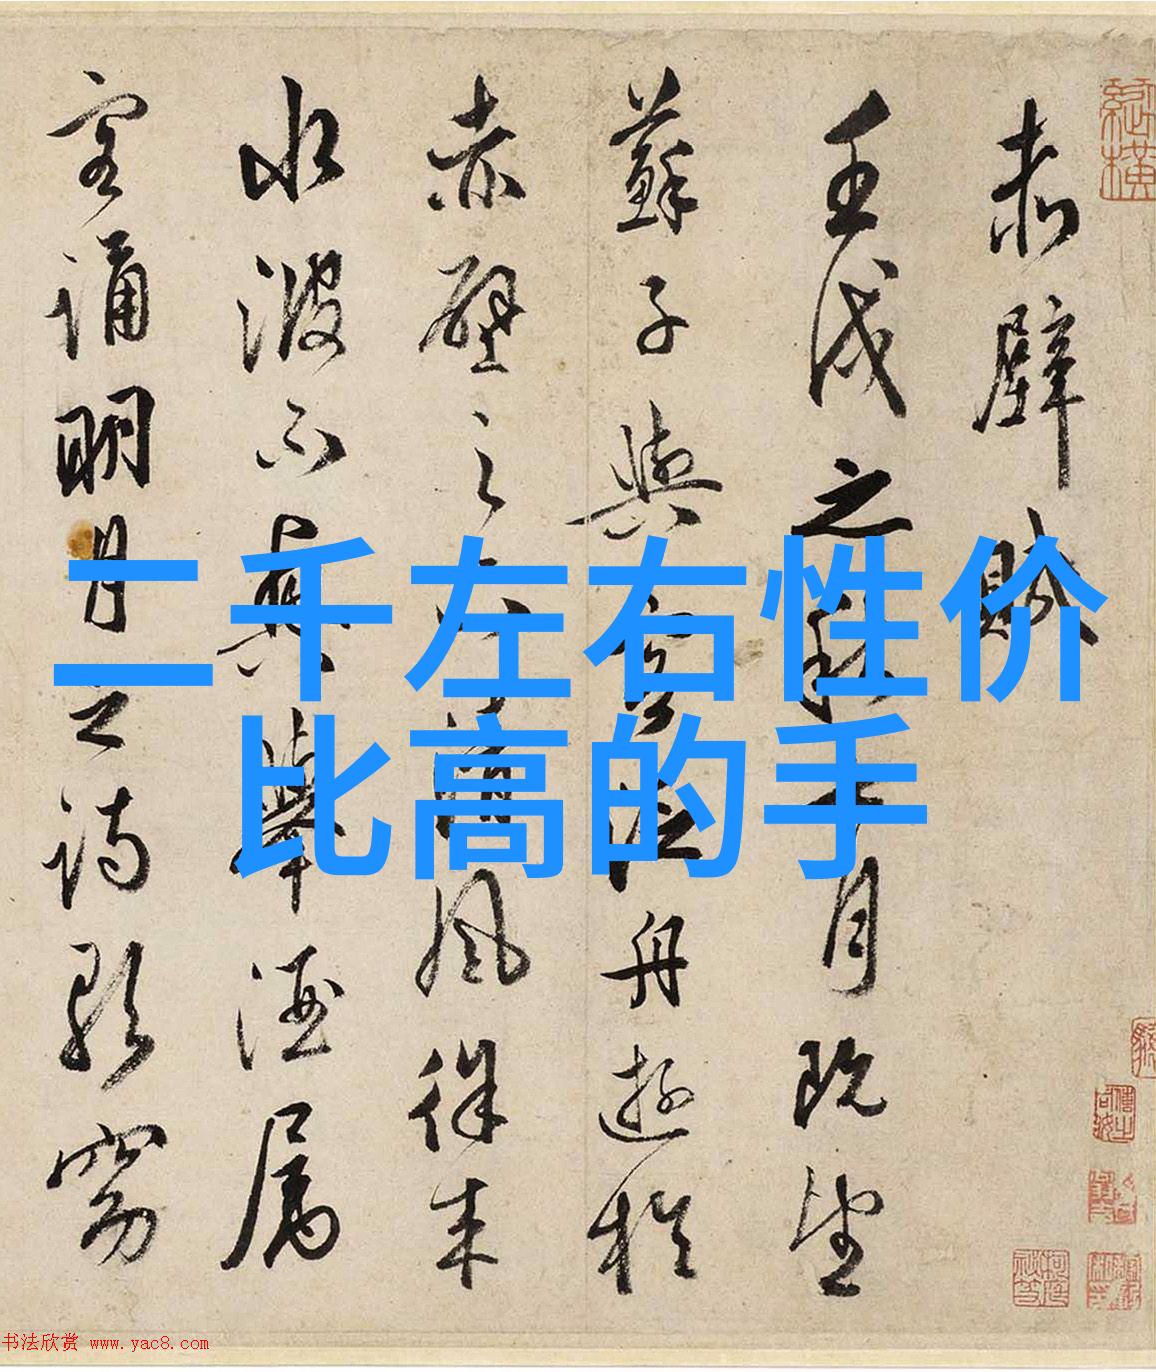 赤壁賦
壬戌之秋七月既望
蘇子與客泛舟遊於
赤壁之下清風徐来
水波不興舉酒属
客誦明月之詩歌窈
二千左右性价
比高的手
书法欣赏 www.yac8.com